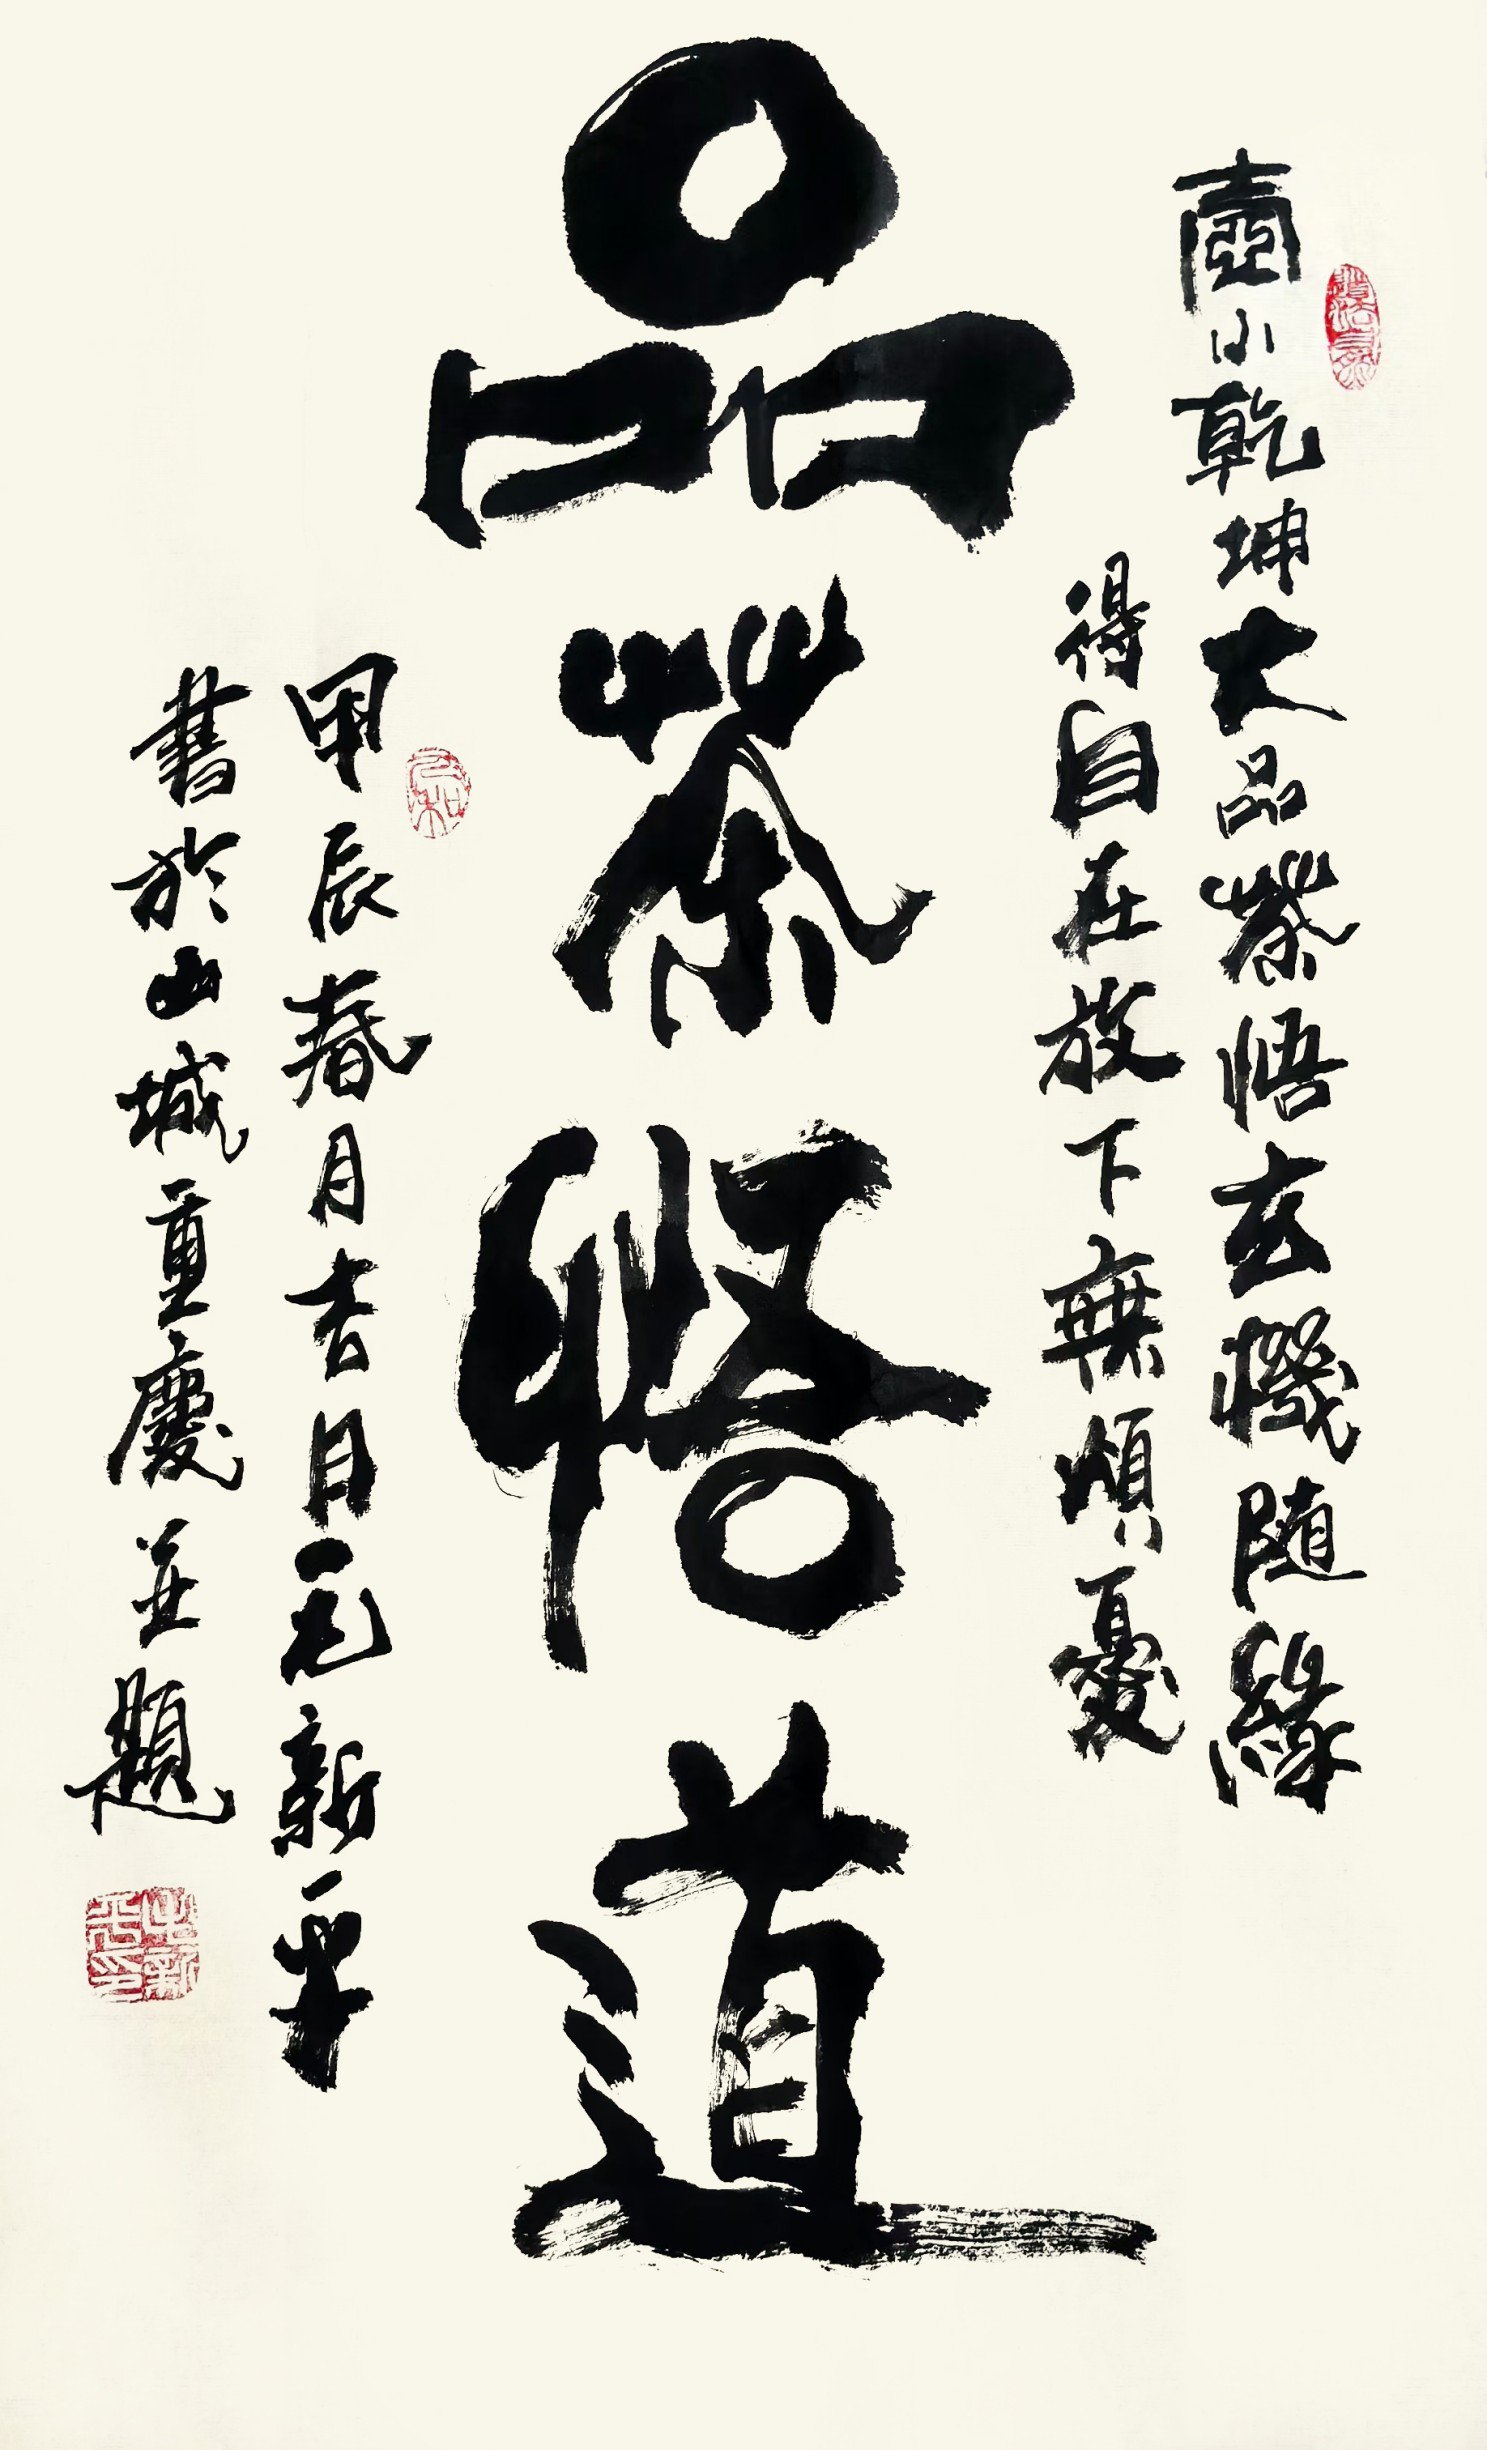 壺小乾坤大品茶悟玄機随緣
得自在放下無煩憂
品茶悟道
甲辰春月吉日毛新平
書於山城重慶並題
毛新平印